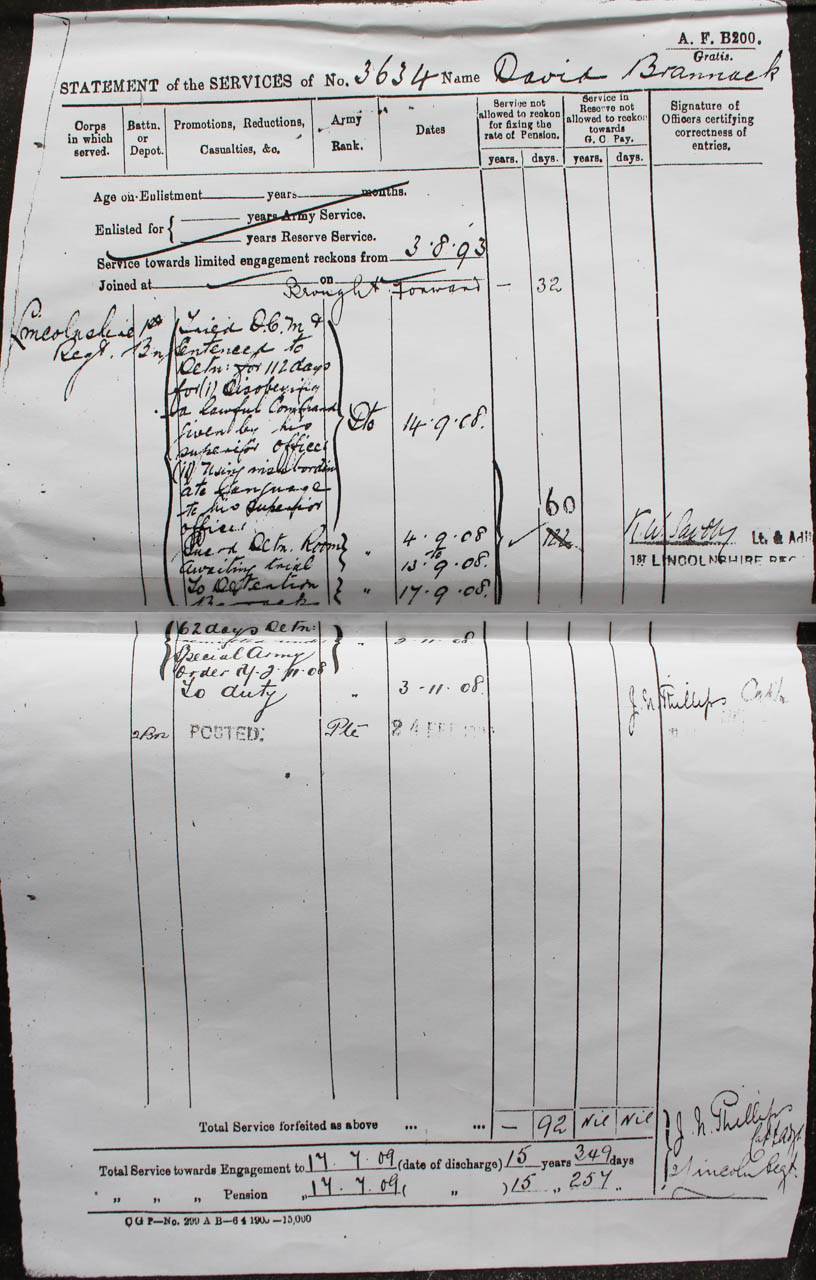 A. F. B200.
Gratis.
STATEMENT of the SERVICES of No. 3634 Name David Brannack
Corps in which served.
Battn. or Depot.
Promotions, Reductions, Casualties, &c.
Army Rank.
Dates
Service not allowed to reckon for fixing the rate of Pension.
Service in Reserve not allowed to reckon towards G. C Pay.
Signature of Officers certifying correctness of entries.
years. days. years. days.
Age on Enlistment years months.
Enlisted for { years Army Service.
years Reserve Service.
Service towards limited engagement reckons from 3.8.93
Joined at on
Brought Forward — 32
Lincolnshire 1st Tried D.C.M &
Regt. Bn Sentenced to
Detn: for 112 days
for (1) Disobeying
a lawful Command
given by his Dto 14.9.08.
superior officer
(11) Using insubordin
ate language 60
to his superior
officer
Guard Detn. Room " 4.9.08 122 Lt. & Adjt
awaiting trial to 13.9.08. 1ST LINCOLNSHIRE REG
To Detention " 17.9.08.
Barrack
62 days Detn:
remitted under " 2-11-08
Special Army
Order d/- 2-11-08
To duty " 3-11-08. J. N. Phillips Capt
2Bn POSTED: Pte 24 FEB
Total Service forfeited as above ... ... — 92 Nil Nil J. N. Phillips
Capt & Adjt
Total Service towards Engagement to 17.7.09 (date of discharge) 15 years 349 days
2 Lincoln Regt.
" " " Pension " 17.7.09 ( " ) 15 " 257 "